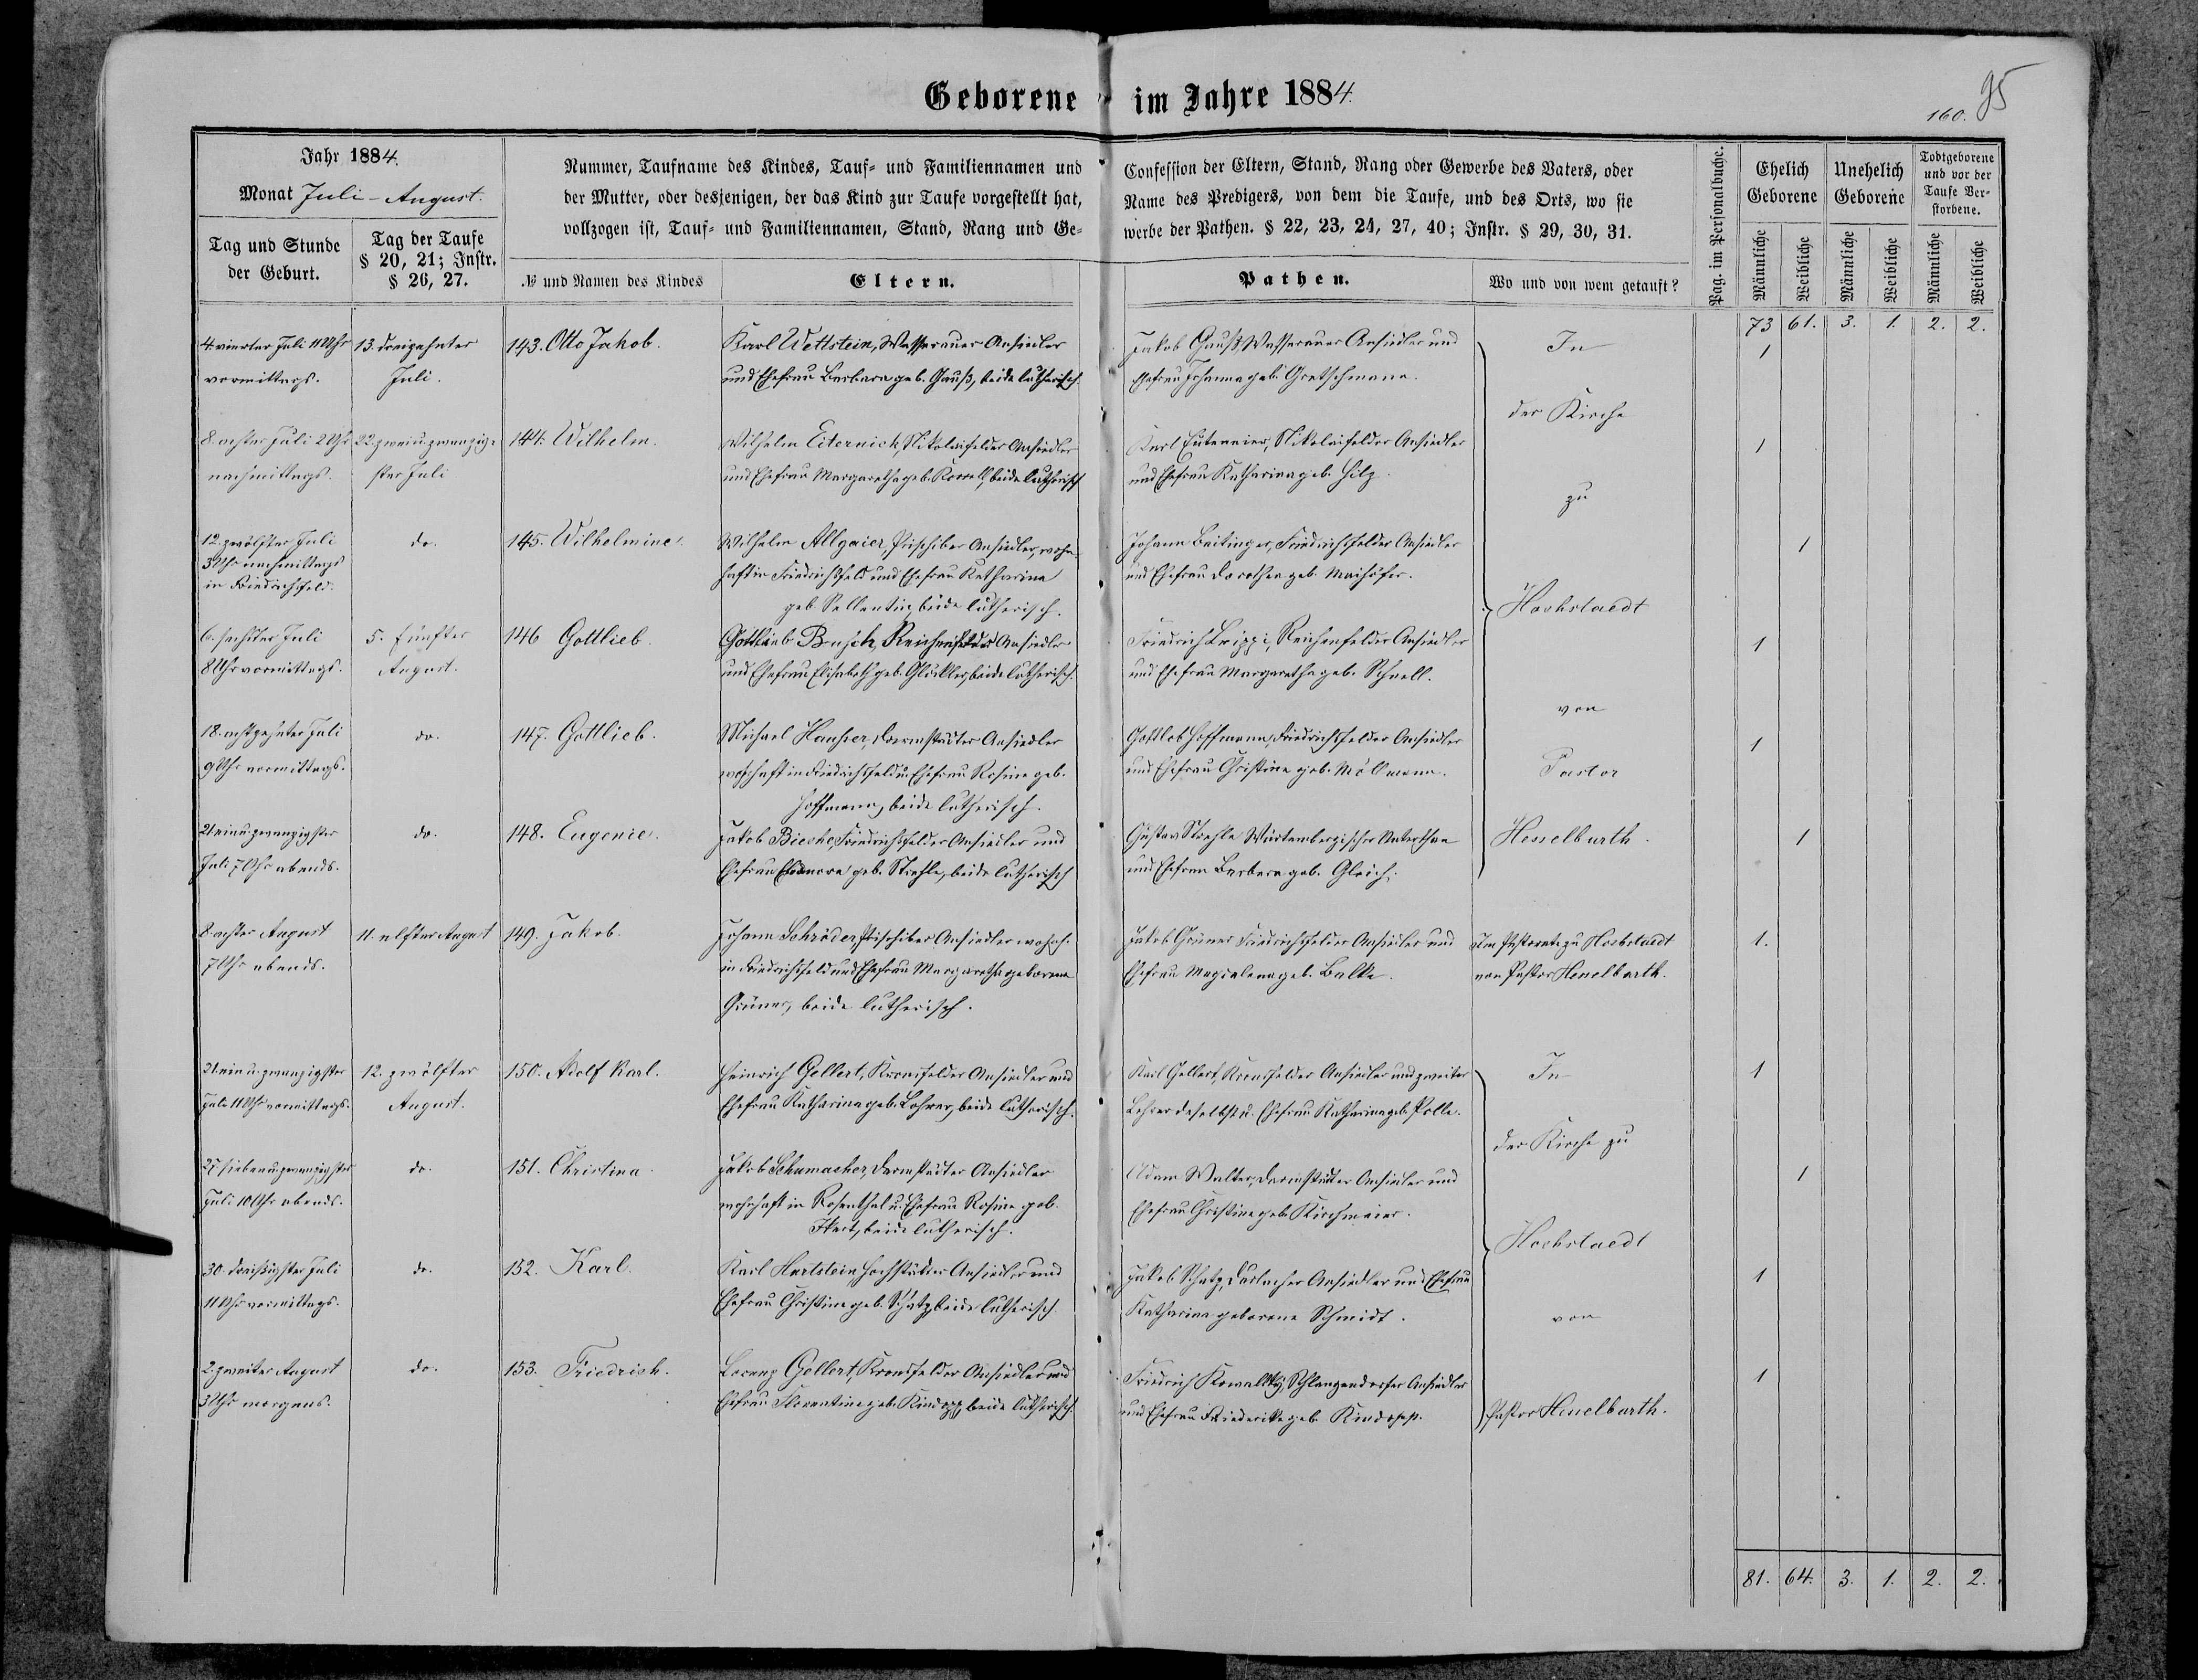 Geborene im Jahre 1884.
160. 95
Jahr 1884.
Monat Juli - August.
Tag und Stunde der Geburt.
Tag der Taufe § 20, 21; Instr. § 26, 27.
Nummer, Taufname des Kindes, Tauf- und Familiennamen und
der Mutter, oder desjenigen, der das Kind zur Taufe vorgestellt hat,
vollzogen ist, Tauf- und Familiennamen, Stand, Rang und Ge-
№ und Namen des Kindes
Eltern.
Confession der Eltern, Stand, Rang oder Gewerbe des Vaters, oder
Name des Predigers, von dem die Taufe, und des Orts, wo sie
werbe der Pathen. § 22, 23, 24, 27, 40; Instr. § 29, 30, 31.
Pathen.
Wo und von wem getauft?
Pag. im Personalbuche.
Ehelich Geborene
Unehelich Geborene
Todtgeborene und vor der Taufe Verstorbene.
Männliche Weibliche Männliche Weibliche Männliche Weibliche
73 61. 3. 1. 2. 2.
4. vierter Juli 11 Uhr
vormittags.
13. dreizehnter
Juli.
143. Otto Jakob.
Karl Wettstein, Wasserauer Ansiedler
und Ehefrau Barbara geb. Gauß, beide lutherisch.
Jakob Gauß, Wasserauer Ansiedler und
Ehefrau Johanna geb. Gretschmann.
1
8. achter Juli 2 Uhr
nachmittags.
22. zweiu.zwanzig-
ster Juli
144. Wilhelm.
Wilhelm Eiternick, Nikolaifelder Ansiedler
und Ehefrau Margaretha geb. Konell, beide lutherisch
Karl Euteneier, Nikolaifelder Ansiedler
und Ehefrau Katharina geb. Hilz.
1
12. zwölfter Juli
3 Uhr nachmittags
in Friedrichsfeld.
do.
145. Wilhelmine.
Wilhelm Allgaier, Prischiber Ansiedler, wohn-
haft in Friedrichsfeld und Ehefrau Katharina
geb. Sellentin, beide lutherisch.
Johann Beitinger, Friedrichsfelder Ansiedler
und Ehefrau Dorothea geb. Maihöfer.
1
6. sechster Juli
8 Uhr vormittags.
5. fünfter
August.
146 Gottlieb.
Gottlieb Busch, Reichenfelder Ansiedler
und Ehefrau Elisabeth geb. Glückler, beide lutherisch.
Friedrich Krippi, Reichenfelder Ansiedler
und Ehefrau Margaretha geb. Schnell.
1
18. achtzehnter Juli
9 Uhr vormittags.
do.
147. Gottlieb.
Michael Hauser, Darmstädter Ansiedler
wohnhaft in Friedrichsfeld u. Ehefrau Rosine geb.
Hoffmann, beide lutherisch.
Gottlob Hoffmann, Friedrichsfelder Ansiedler
und Ehefrau Christine geb. Möllmann.
1
21. einu.zwanzigster
Juli 7 Uhr abends.
do.
148. Eugenie.
Jakob Bieske, Friedrichsfelder Ansiedler und
Ehefrau Eleonora geb. Strehle, beide lutherisch
Gustav Strehle Würtembergischer Unterthan
und Ehefrau Barbara geb. Gleich.
1
In
der Kirche
zu
Hochstaedt
von
Pastor
Hesselbarth.
8. achter August
7 Uhr abends.
11. elfter August
149. Jakob.
Johann Schröder, Prischiber Ansiedler wohnh.
in Friedrichsfeld und Ehefrau Margaretha geborene
Grüner, beide lutherisch.
Jakob Grüner Friedrichsfelder Ansiedler und
Ehefrau Magdalena geb. Balke.
Im Pastorate zu Hochstaedt
von Pastor Hesselbarth.
1.
21. ein u. zwanzigster
Juli 11 Uhr vormittags.
12. zwölfter
August.
150. Adolf Karl.
Heinrich Gellert, Kronsfelder Ansiedler und
Ehefrau Katharina geb. Lohrer, beide lutherisch.
Karl Gellert, Kronsfelder Ansiedler und zweiter
Lehrer daselbst u. Ehefrau Katharina geb. Polle.
1
27. siebenu.zwanzigster
Juli 10 Uhr abends.
do.
151. Christina.
Jakob Schumacher, Darmstädter Ansiedler
wohnhaft in Rosenthal u. Ehefrau Rosine geb.
Hert, beide lutherisch.
Adam Walter, Darmstädter Ansiedler und
Ehefrau Christine geb. Kirchmaier.
1
30. dreißigster Juli
11 Uhr vormittags.
do.
152. Karl.
Karl Hartstein, Hochstädter Ansiedler und
Ehefrau Christine geb. Schatz, beide lutherisch.
Jakob Schatz, Durlacher Ansiedler und Ehefrau
Katharina geborene Schmidt.
1
2. zweiter August
3 Uhr morgens.
do.
153. Friedrich.
Lorenz Gellert, Kronsfelder Ansiedler und
Ehefrau Florentine geb. Kindopp, beide lutherisch.
Friedrich Kowallsky, Schlangendorfer Ansiedler
und Ehefrau Friederike geb. Kindopp.
1
In
der Kirche zu
Hochstaedt
von
Pastor Hesselbarth.
81. 64. 3. 1. 2. 2.